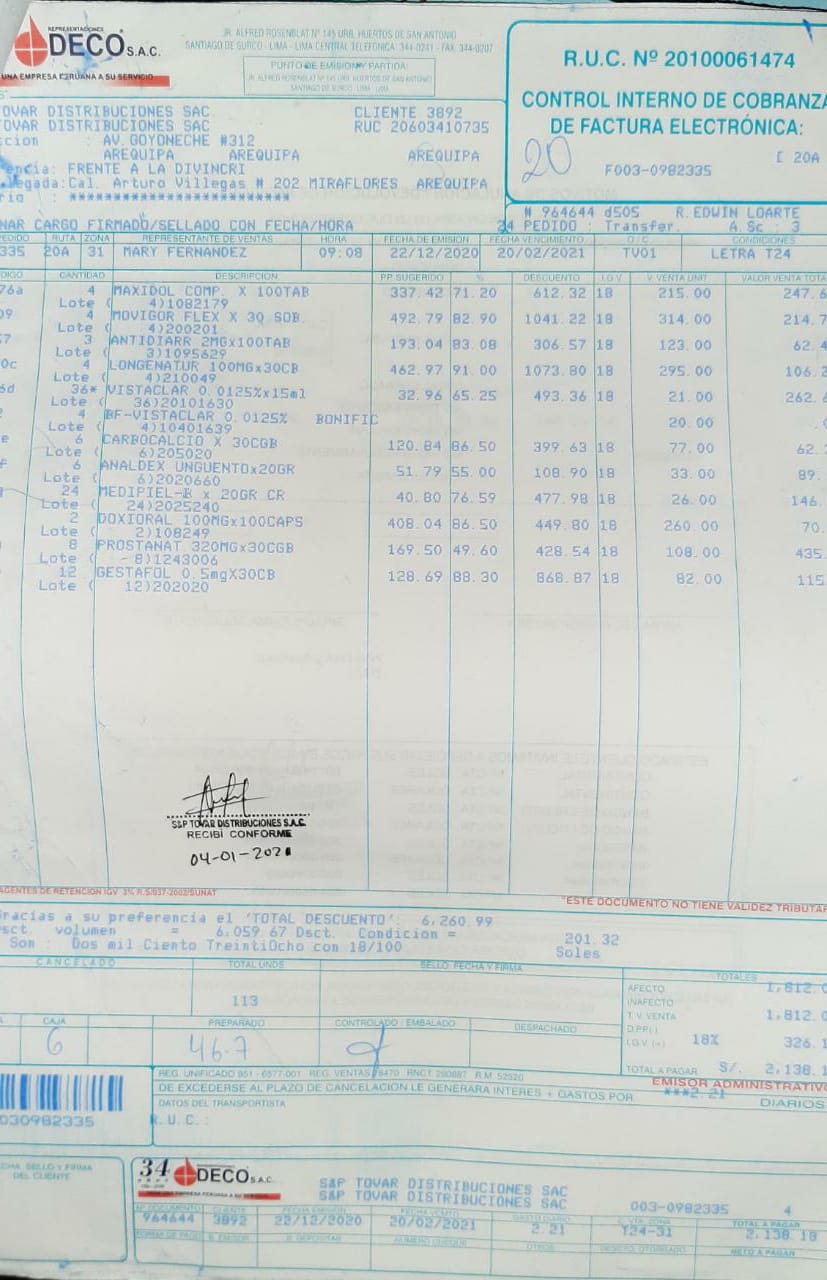 REPRESENTACIONES
DECO S.A.C.
UNA EMPRESA PERUANA A SU SERVICIO
JR. ALFRED ROSENBLAT Nº 145 URB. HUERTOS DE SAN ANTONIO
SANTIAGO DE SURCO - LIMA - LIMA CENTRAL TELEFONICA: 344-0241 - FAX: 344-0207
PUNTO DE EMISION Y PARTIDA:
JR. ALFRED ROSENBLAT Nº 145 URB. HUERTOS DE SAN ANTONIO
SANTIAGO DE SURCO - LIMA
R.U.C. Nº 20100061474
CONTROL INTERNO DE COBRANZA
DE FACTURA ELECTRÓNICA:
20
F003-0982335
[ 20A
TOVAR DISTRIBUCIONES SAC CLIENTE 3892
TOVAR DISTRIBUCIONES SAC RUC 20603410735
ccion : AV. GOYONECHE #312
AREQUIPA AREQUIPA AREQUIPA
encia: FRENTE A LA DIVINCRI
legada:Cal. Arturo Villegas # 202 MIRAFLORES AREQUIPA
rio : ************************
# 964644 d505 R.EDWIN LOARTE
NAR CARGO FIRMADO/SELLADO CON FECHA/HORA 24 PEDIDO : Transfer. A.Sc : 3
PEDIDO RUTA ZONA REPRESENTANTE DE VENTAS HORA FECHA DE EMISION FECHA VENCIMIENTO O/C CONDICIONES
335 20A 31 MARY FERNANDEZ 09:08 22/12/2020 20/02/2021 TV01 LETRA T24
DIGO CANTIDAD DESCRIPCION P.P. SUGERIDO % DESCUENTO I.G.V V. VENTA UNIT VALOR VENTA TOTAL
76a 4 MAXIDOL COMP. X 100TAB 337.42 71.20 612.32 18 215.00 247.6
Lote ( 4)1082179
09 4 MOVIGOR FLEX X 30 SOB 492.79 82.90 1041.22 18 314.00 214.7
Lote ( 4)200201
7 3 ANTIDIARR 2MGx100TAB 193.04 83.08 306.57 18 123.00 62.4
Lote ( 3)1095629
0c 4 LONGENATUR 100MGx30CB 462.97 91.00 1073.80 18 295.00 106.2
Lote ( 4)210049
6d 36* VISTACLAR 0.0125%x15ml 32.96 65.25 493.36 18 21.00 262.6
Lote ( 36)20101630
4 BF-VISTACLAR 0.0125% BONIFIC 20.00 .0
Lote ( 4)10401639
e 6 CARBOCALCIO X 30CGB 120.84 86.50 399.63 18 77.00 62.
Lote ( 6)205020
f 6 ANALDEX UNGUENTOx20GR 51.79 55.00 108.90 18 33.00 89.
Lote ( 6)2020660
24 MEDIPIEL-B x 20GR CR 40.80 76.59 477.98 18 26.00 146.
Lote ( 24)2025240
2 DOXIORAL 100MGx100CAPS 408.04 86.50 449.80 18 260.00 70.
Lote ( 2)108249
8 PROSTANAT 320MGx30CGB 169.50 49.60 428.54 18 108.00 435.
Lote ( 8)1243006
12 GESTAFOL 0.5mgX30CB 128.69 88.30 868.87 18 82.00 115
Lote ( 12)202020
S&P TOVAR DISTRIBUCIONES S.A.C.
RECIBI CONFORME
04-01-2021
AGENTES DE RETENCION IGV 3% R.S/037-2002/SUNAT
"ESTE DOCUMENTO NO TIENE VALIDEZ TRIBUTAR
Gracias a su preferencia el 'TOTAL DESCUENTO': 6,260.99
Dsct. volumen = 6,059.67 Dsct. Condicion = 201.32
Son : Dos mil Ciento TreintiOcho con 18/100 Soles
CANCELADO TOTAL UNDS. SELLO, FECHA Y FIRMA TOTALES
113
AFECTO 1,812.0
INAFECTO
T.V. VENTA 1,812.0
D.PP(-)
I.G.V (+) 18% 326.1
TOTAL A PAGAR S/. 2,138.1
CAJA PREPARADO CONTROLADO / EMBALADO DESPACHADO
6 46.7
EMISOR ADMINISTRATIVO
REG. UNIFICADO 951 - 6577-001 REG. VENTAS 8470
DE EXCEDERSE AL PLAZO DE CANCELACION LE GENERARA INTERES + GASTOS POR ***2.21 DIARIOS
DATOS DEL TRANSPORTISTA
R.U.C.:
030982335
CHA, SELLO Y FIRMA
DEL CLIENTE
34 DECO S.A.C.
UNA EMPRESA PERUANA A SU SERVICIO
S&P TOVAR DISTRIBUCIONES SAC
S&P TOVAR DISTRIBUCIONES SAC
003-0982335 4
Nº DOCUMENTO CLIENTE FECHA EMISION FECHA VENCTO GASTO DIARIO C. VTA. ZONA TOTAL A PAGAR
964644 3892 22/12/2020 20/02/2021 2.21 T24-31 2,138.18
FORMA DE PAGO B. EMISOR B. DEPOSITAR NUMERO CHEQUE OTROS DESCTO. OTORGADO NETO A PAGAR